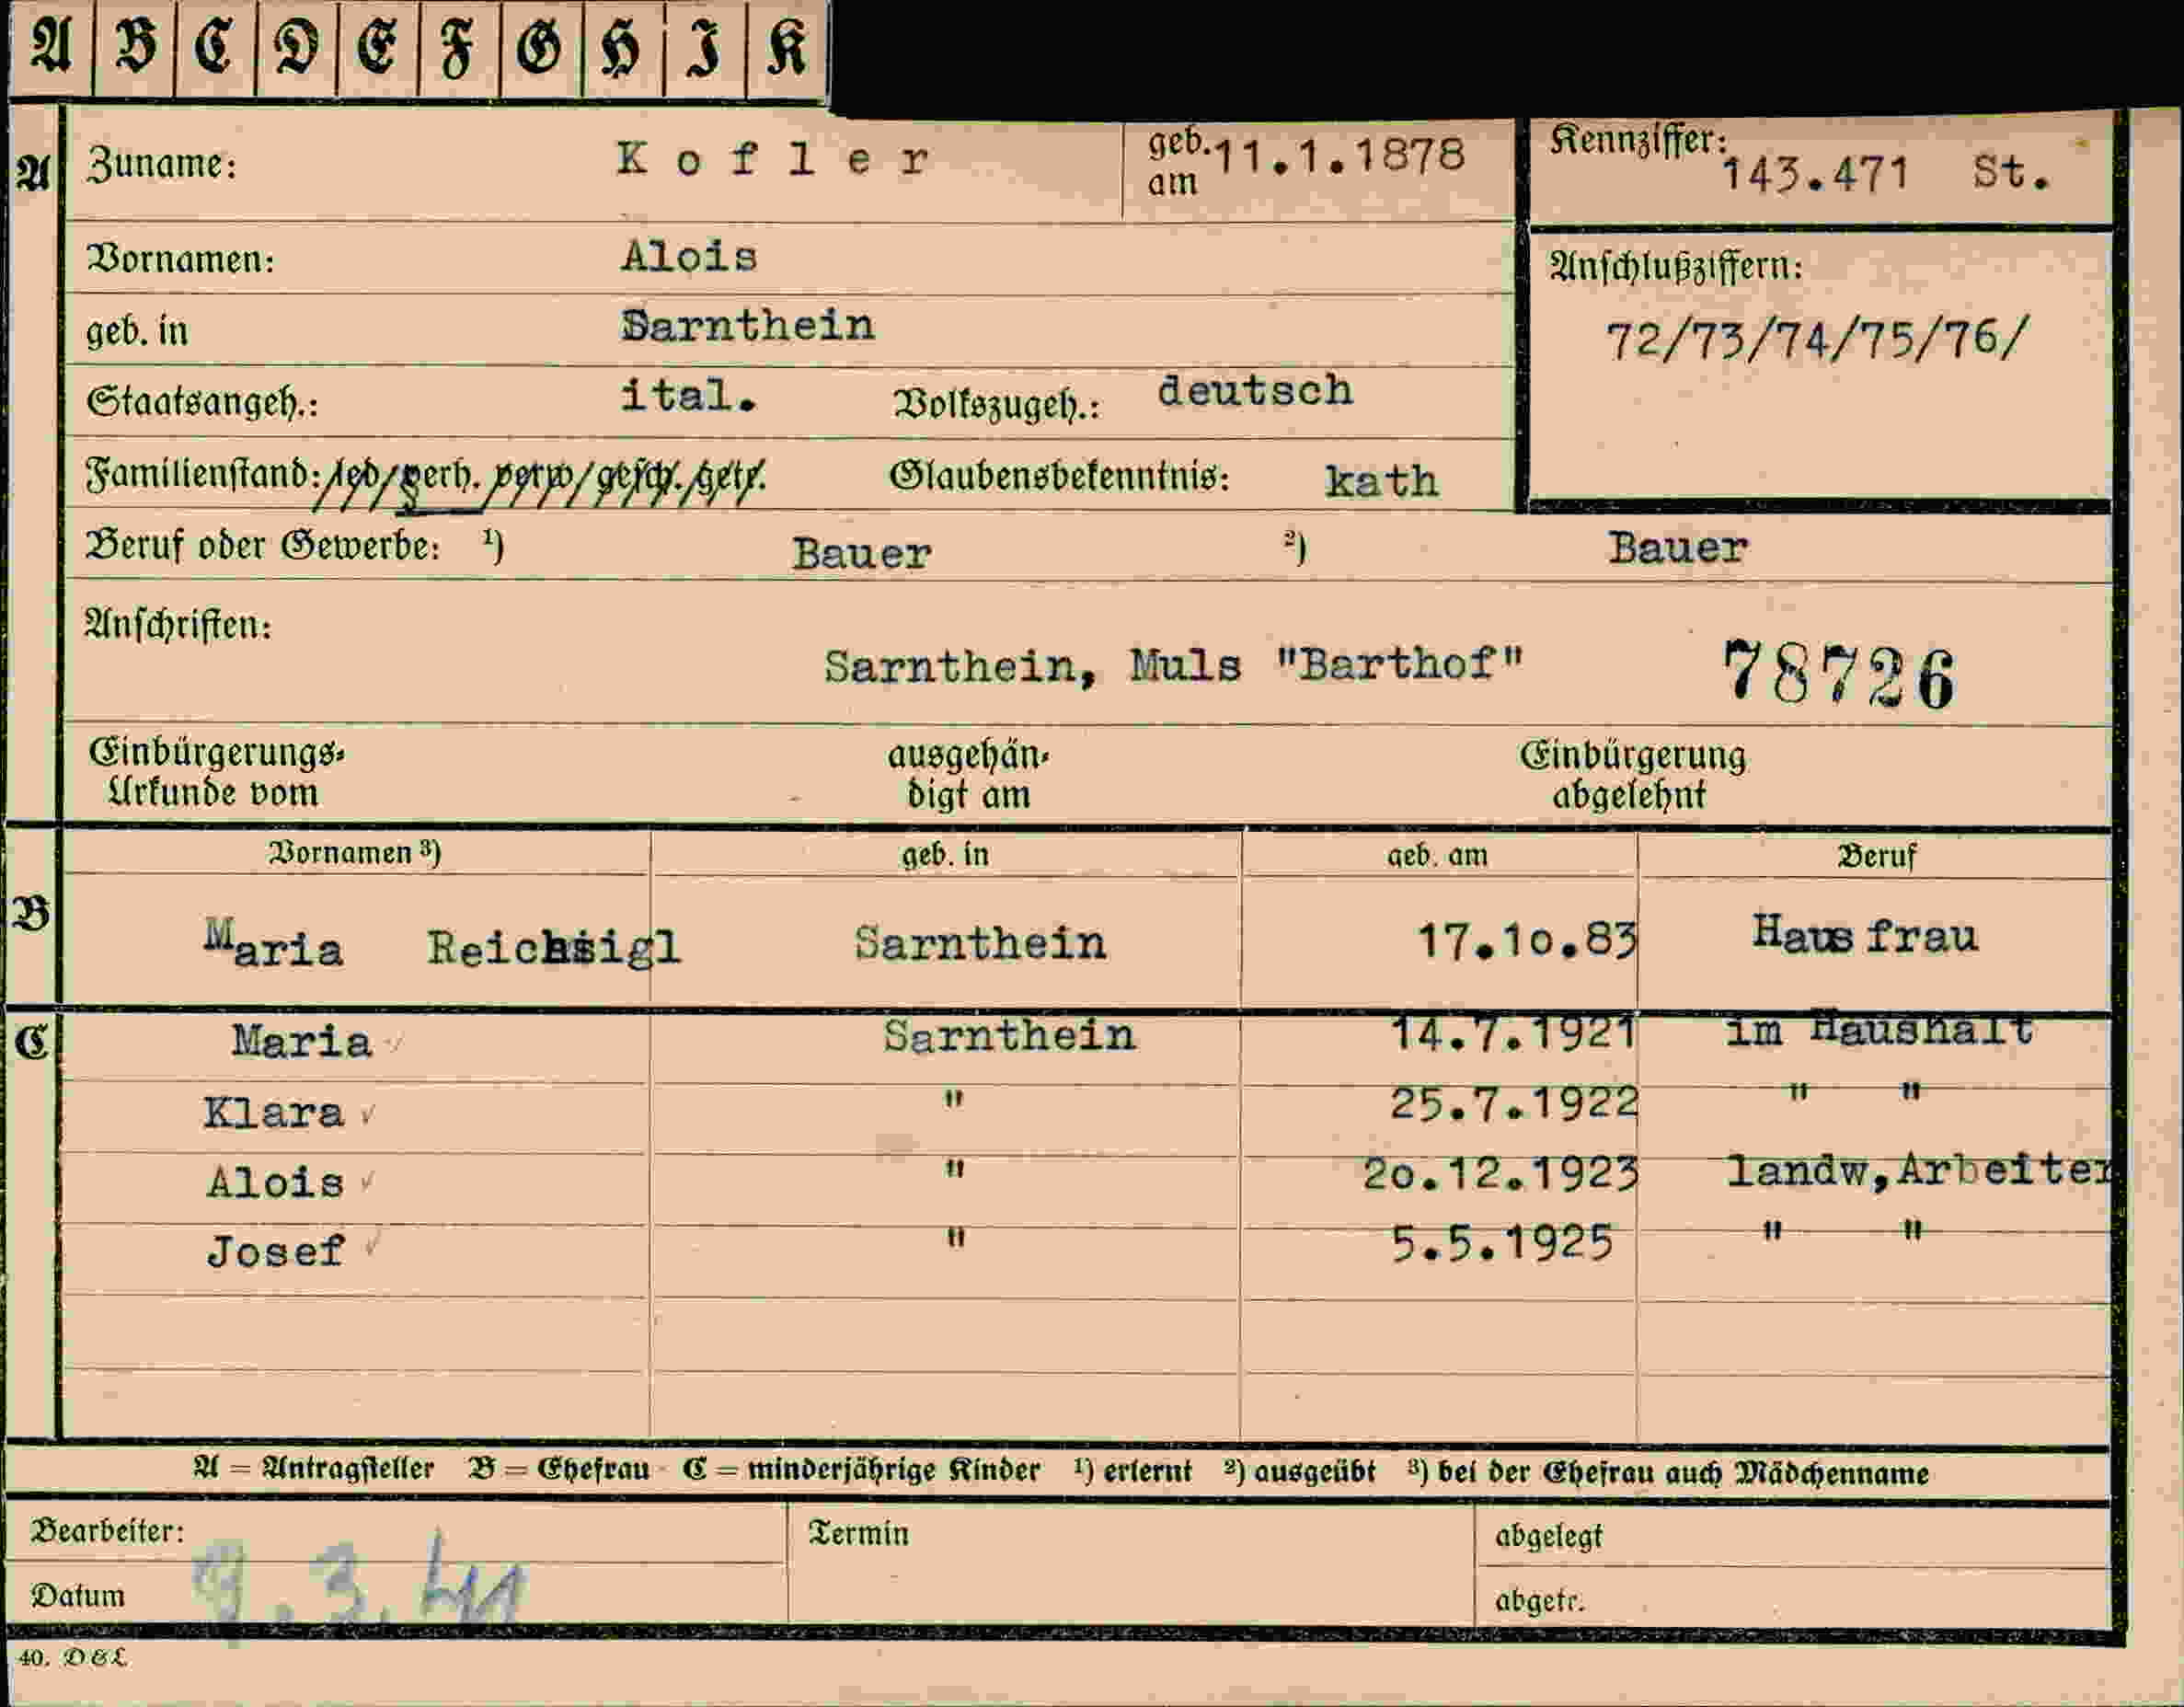 A B C D E F G H I K
A Zuname: Kofler geb. am 11.1.1878 Kennziffer: 143.471 St.
Vornamen: Alois Anschlußziffern:
geb. in Sarnthein 72/73/74/75/76/
Staatsangeh.: ital. Volkszugeh.: deutsch
Familienstand: led/verh. verw/gesch./getr. Glaubensbekenntnis: kath
Beruf oder Gewerbe: ¹) Bauer ²) Bauer
Anschriften:
Sarnthein, Muls "Barthof" 78726
Einbürgerungs- ausgehän- Einbürgerung
Urkunde vom digt am abgelehnt
Vornamen ³) geb. in geb. am Beruf
B Maria Reichsigl Sarnthein 17.10.83 Hausfrau
C Maria Sarnthein 14.7.1921 im Haushalt
Klara " 25.7.1922 " "
Alois " 20.12.1923 landw,Arbeiter
Josef " 5.5.1925 " "
A = Antragsteller B = Ehefrau C = minderjährige Kinder ¹) erlernt ²) ausgeübt ³) bei der Ehefrau auch Mädchenname
Bearbeiter: Termin abgelegt
Datum 9.3.41 abgetr.
40. D & L